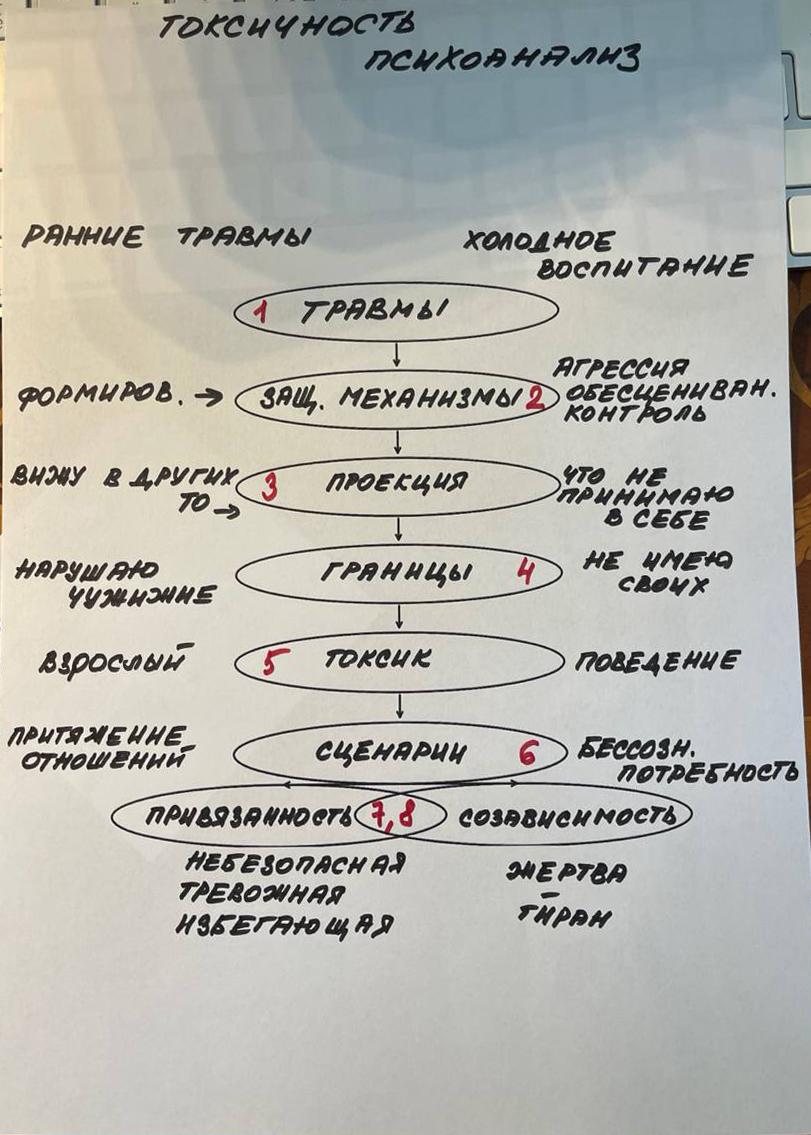 ТОКСИЧНОСТЬ
ПСИХОАНАЛИЗ
РАННИЕ ТРАВМЫ
ХОЛОДНОЕ
ВОСПИТАНИЕ
1 ТРАВМЫ
ФОРМИРОВ. →
ЗАЩ. МЕХАНИЗМЫ 2
АГРЕССИЯ
ОБЕСЦЕНИВАН.
КОНТРОЛЬ
ВИЖУ В ДРУГИХ
ТО →
3 ПРОЕКЦИЯ
ЧТО НЕ
ПРИНИМАЮ
В СЕБЕ
НАРУШАЮ
ЧУЖИЖИЕ
ГРАНИЦЫ 4
НЕ ИМЕЮ
СВОИХ
ВЗРОСЛЫЙ
5 ТОКСИК
ПОВЕДЕНИЕ
ПРИТЯЖЕНИЕ
ОТНОШЕНИЙ
СЦЕНАРИИ 6
БЕССОЗН.
ПОТРЕБНОСТЬ
ПРИВЯЗАННОСТЬ 7,8 СОЗАВИСИМОСТЬ
НЕБЕЗОПАСНАЯ
ТРЕВОЖНАЯ
ИЗБЕГАЮЩАЯ
ЖЕРТВА
–
ТИРАН